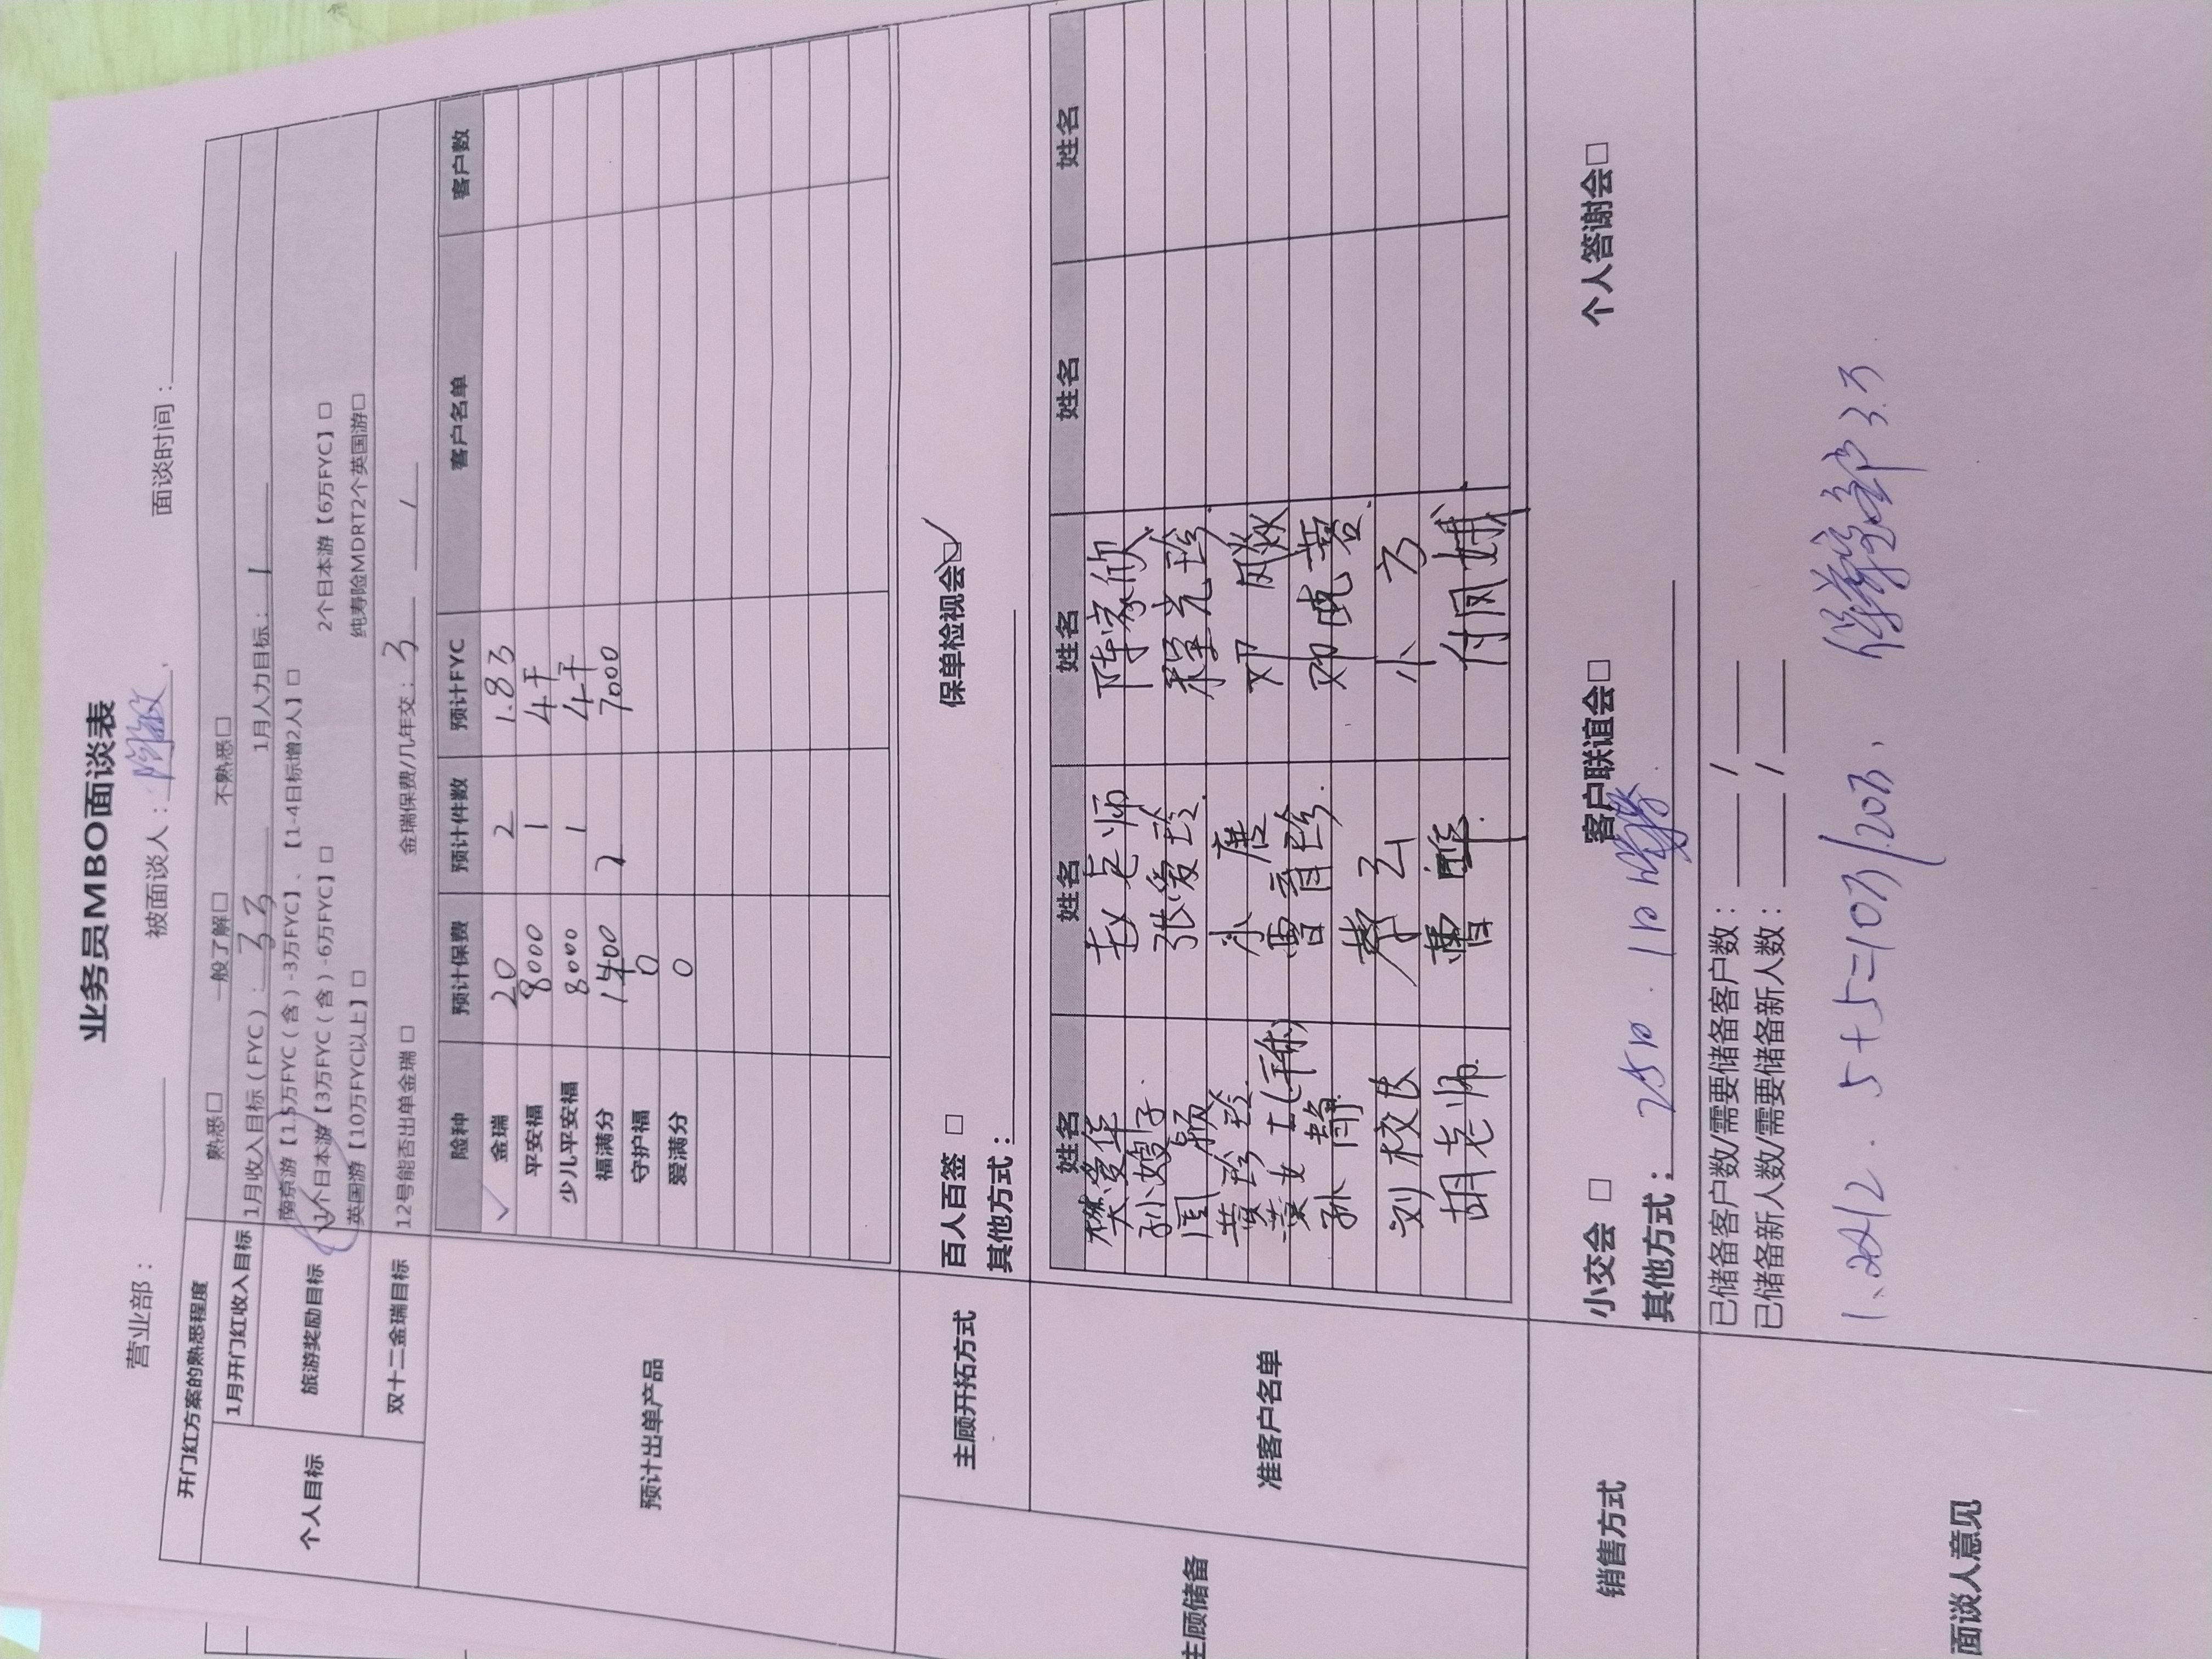 业务员MBO面谈表
营业部： 被面谈人： 面谈时间：
开门红方案的熟悉程度 熟悉□ 一般了解□ 不熟悉□
个人目标
1月开门红收入目标 1月收入目标（FYC）： 1月人力目标：1
旅游奖励目标
南京游【1.5万FYC（含）-3万FYC】、【1-4日标增2人】□
1个日本游【3万FYC（含）-6万FYC】□ 2个日本游【6万FYC】□
英国游【10万FYC以上】□ 纯寿险MDRT2个英国游□
双十二金瑞目标 12号能否出单金瑞 □ 金瑞保费/几年交：3 /
预计出单产品
险种 预计保费 预计件数 预计FYC 客户名单 客户数
金瑞 20 2 1.83
平安福 8000 1 4千
少儿平安福 8000 1 4千
福满分 1400 2 7000
守护福 0
爱满分 0
主顾储备
主顾开拓方式 百人百签 □ 保单检视会☑
其他方式：
准客户名单
姓名 姓名 姓名 姓名 姓名
樊爱华 赵老师 陈家欣
孙嫂子 张爱玲 程光珍
周颖 小唐
黄珍玲 曹育珍
孙静 李云 小方
刘校长 曹晔 付凤娥
胡老师
销售方式 小交会 □ 客户联谊会□ 个人答谢会□
其他方式：
面谈人意见
已储备客户数/需要储备客户数： /
已储备新人数/需要储备新人数： /
5+5=10万/20万